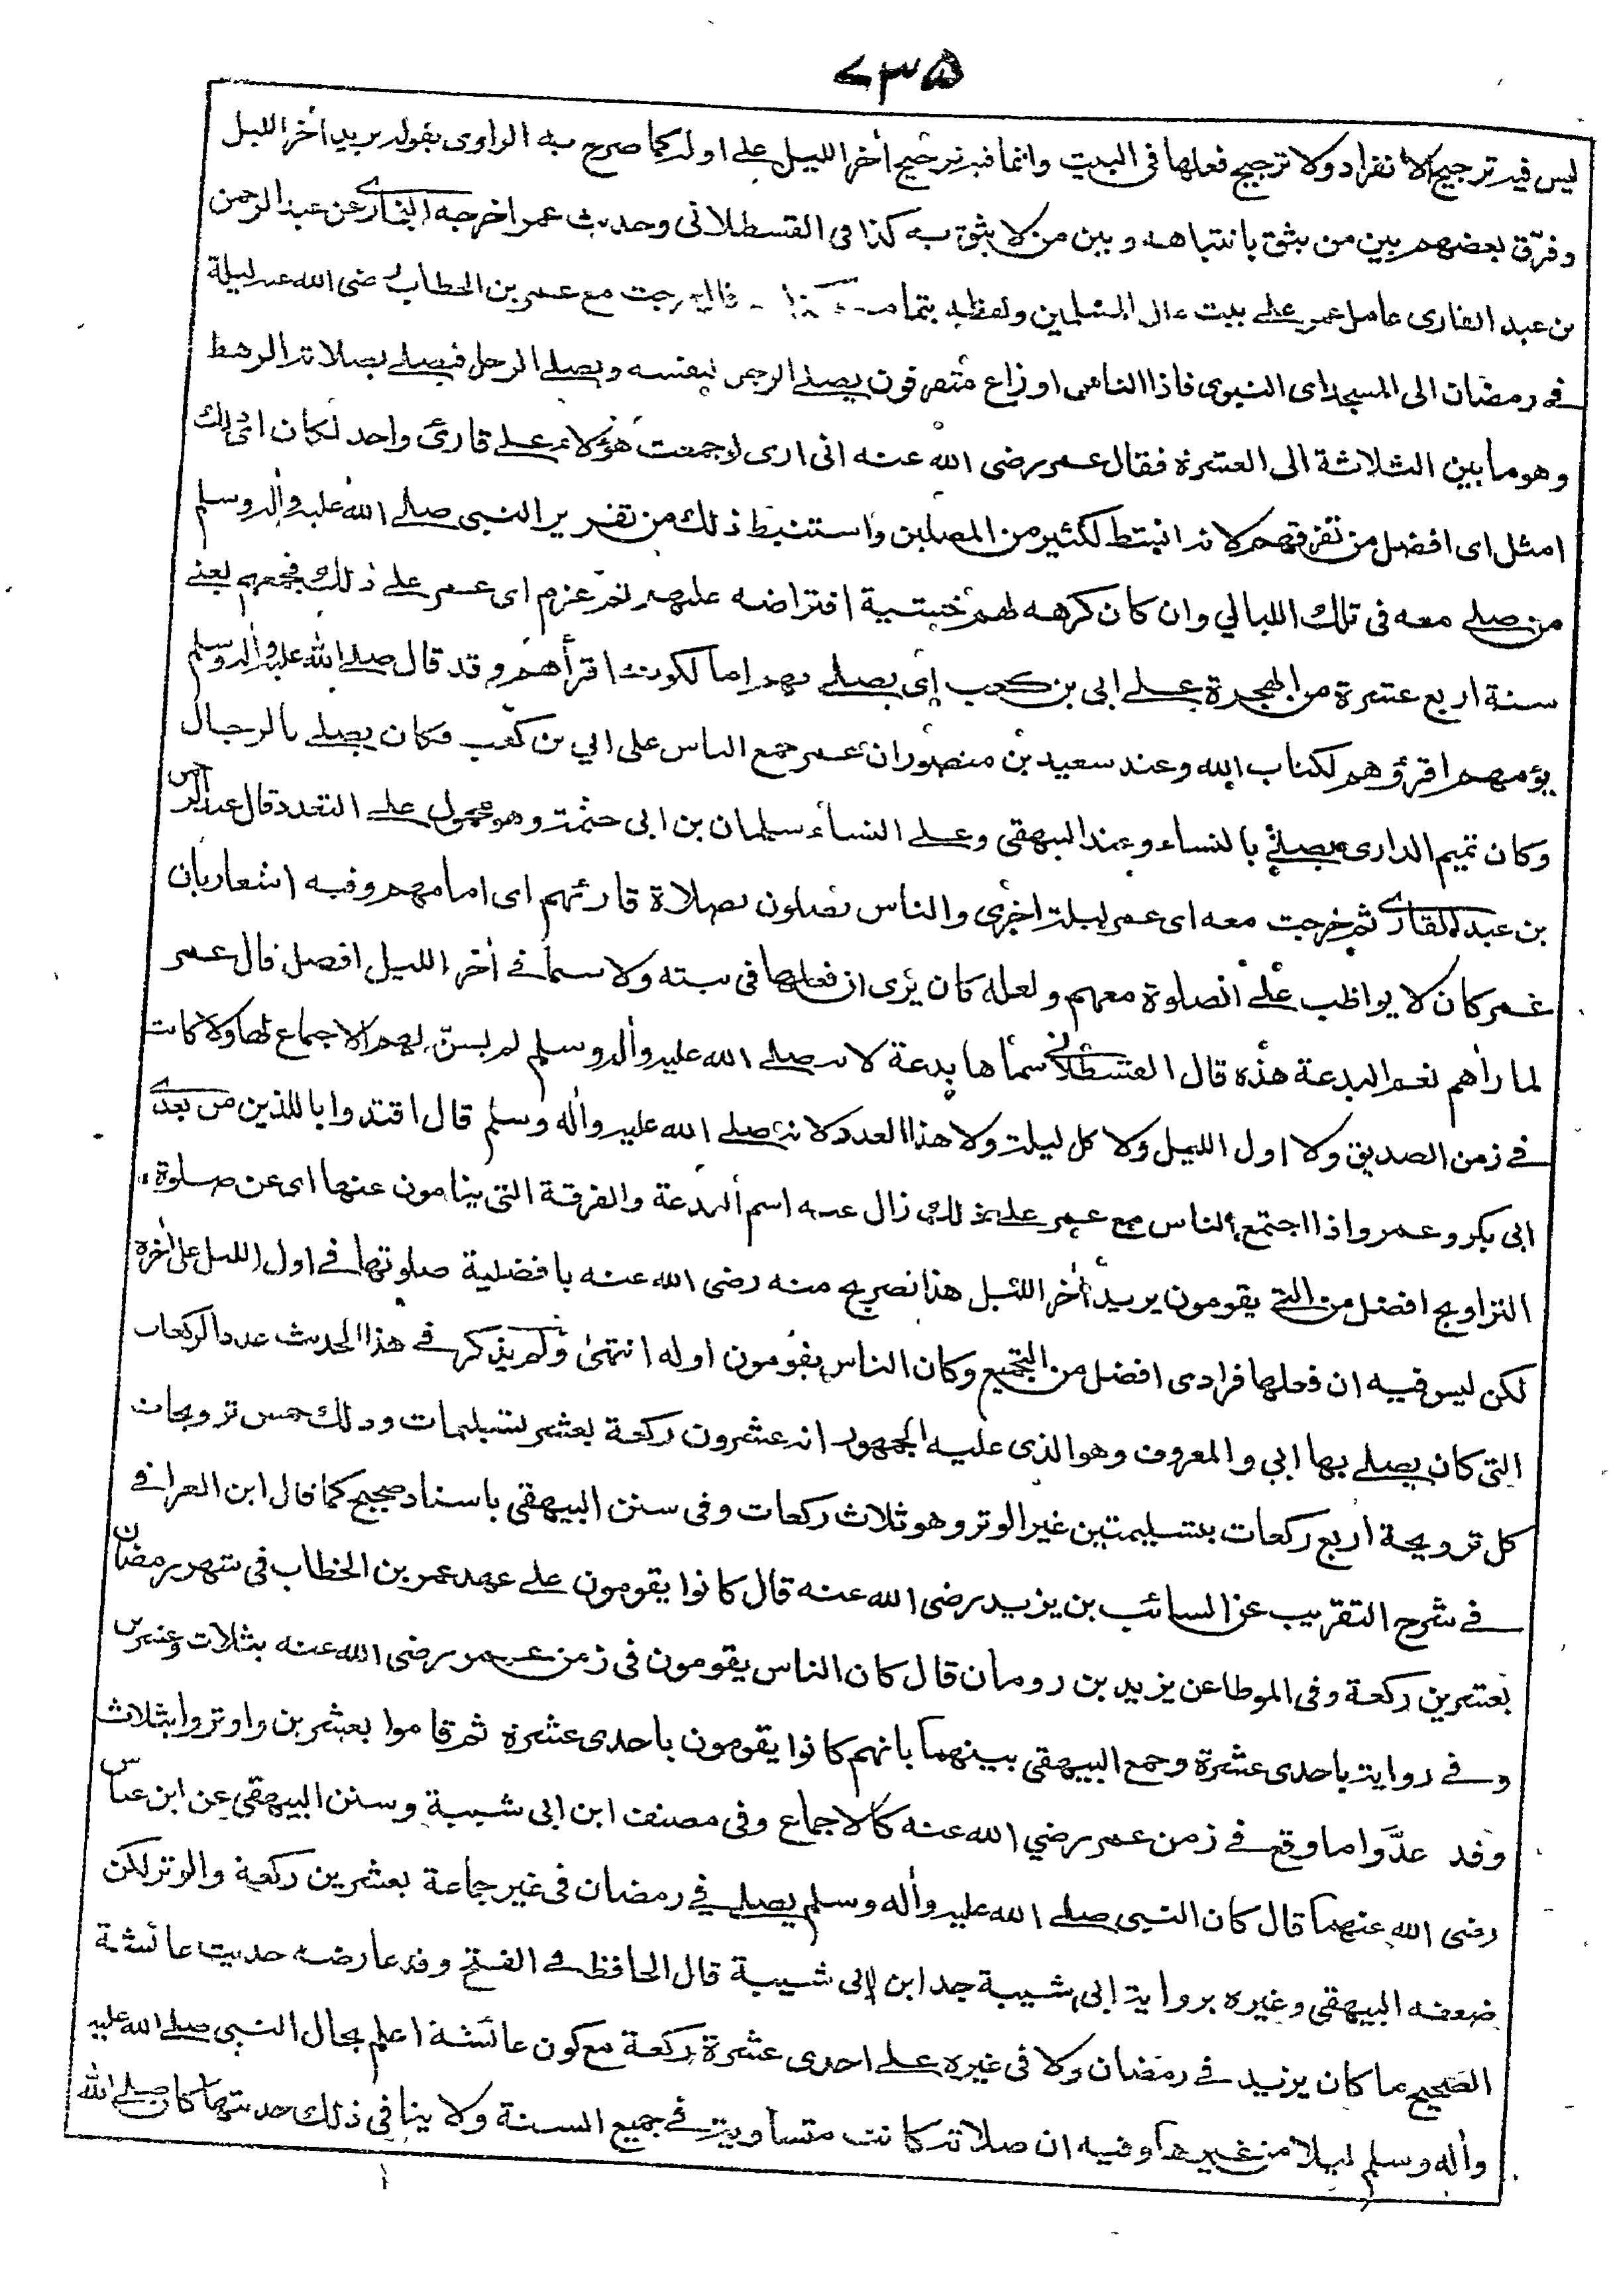 ٧٣٥
ليس فيه ترجيح الانفراد ولا ترجيح فعلها فى البيت وانما فيه ترجيح اٰخر الليل على اوله كما صرح به الراوى بقوله يريد اٰخر الليل
وفرّق بعضهم بين من يثق بانتباهه وبين من لا يثق به كذا فى القسطلانى وحديث عمر اخرجه البخارى عن عبد الرحمن
بن عبد القارى عامل عمر على بيت مال المسلمين ولفظه بتمامه قال خرجت مع عمر بن الخطاب رضى الله عنه ليلة
فى رمضان الى المسجد اى النبوى فاذا الناس اوزاع متفرقون يصلى الرجل لنفسه ويصلى الرجل فيصلى بصلاته الرهط
وهو ما بين الثلاثة الى العشرة فقال عمر رضى الله عنه انى ارى لو جمعت هؤلاء على قارئ واحد لكان اى ذلك
امثل اى افضل من تفرقهم لانه انبسط لكثير من المصلين واستنبط ذلك من تقرير النبى صلى الله عليه واٰله وسلم
من صلى معه فى تلك الليالي وان كان كرهه لهم خشية افتراضه عليهم ثم عزم اى عمر على ذلك فجمعهم يعنى
سنة اربع عشرة من الهجرة على ابى بن كعب اى يصلى بهم اماما لكونه اقرأهم وقد قال صلى الله عليه واٰله وسلم
يؤمهم اقرؤهم لكتاب الله وعند سعيد بن منصور ان عمر جمع الناس على ابي بن كعب فكان يصلى بالرجال
وكان تميم الدارى يصلى بالنساء وعند البيهقى وعلى النساء سليمان بن ابى حثمة وهو محمول على التعدد قال عبد الرحمن
بن عبد القارى ثم خرجت معه اى عمر ليلة اخرى والناس يصلون بصلاة قارئهم اى امامهم وفيه اشعار بان
عمر كان لا يواظب على الصلوة معهم ولعله كان يرى ان فعلها فى بيته ولا سيما فى اٰخر الليل افضل قال عمر
لما راٰهم نعم البدعة هذه قال القسطلانى سماها بدعة لانه صلى الله عليه واٰله وسلم لم يسنّ لهم الاجماع لها ولا كانت
فى زمن الصديق ولا اول الليل ولا كل ليلة ولا هذا العدد لانه صلى الله عليه واٰله وسلم قال اقتدوا باللذين من بعدى
ابى بكر وعمر واذا اجتمع الناس مع عمر على ذلك زال عنه اسم البدعة والفرقة التى ينامون عنها اى عن صلوة
التراويح افضل من التى يقومون يريد اٰخر الليل هذا تصريح منه رضى الله عنه بافضلية صلوتها فى اول الليل على اٰخره
لكن ليس فيه ان فعلها فرادى افضل من التجميع وكان الناس يقومون اوله انتهىٰ ولم يذكر فى هذا الحديث عدد الركعات
التى كان يصلى بها ابي والمعروف وهو الذى عليه الجمهور انه عشرون ركعة بعشر تسليمات وذلك خمس ترويحات
كل ترويحة اربع ركعات بتسليمتين غير الوتر وهو ثلاث ركعات وفى سنن البيهقى باسناد صحيح كما قال ابن العراقى
فى شرح التقريب عن السائب بن يزيد رضى الله عنه قال كانوا يقومون على عهد عمر بن الخطاب فى شهر رمضان
بعشرين ركعة وفى الموطا عن يزيد بن رومان قال كان الناس يقومون فى زمن عمر رضى الله عنه بثلاث وعشرين
وفى رواية باحدى عشرة وجمع البيهقى بينهما بانهم كانوا يقومون باحدى عشرة ثم قاموا بعشرين واوتروا بثلاث
وقد عدّوا ما وقع فى زمن عمر رضي الله عنه كالاجماع وفى مصنف ابن ابى شيبة وسنن البيهقى عن ابن عباس
رضى الله عنهما قال كان النبى صلى الله عليه واٰله وسلم يصلى في رمضان فى غير جماعة بعشرين ركعة والوتر لكن
ضعفه البيهقى وغيره برواية ابى شيبة جد ابن ابى شيبة قال الحافظ فى الفتح وقد عارضه حديث عائشة
الصحيح ما كان يزيد فى رمضان ولا فى غيره على احدى عشرة ركعة مع كون عائشة اعلم بحال النبى صلى الله عليه
واٰله وسلم ليلا من غيرها وفيه ان صلاته كانت متساوية فى جميع السنة ولا ينافى ذلك حديثها كان صلى الله